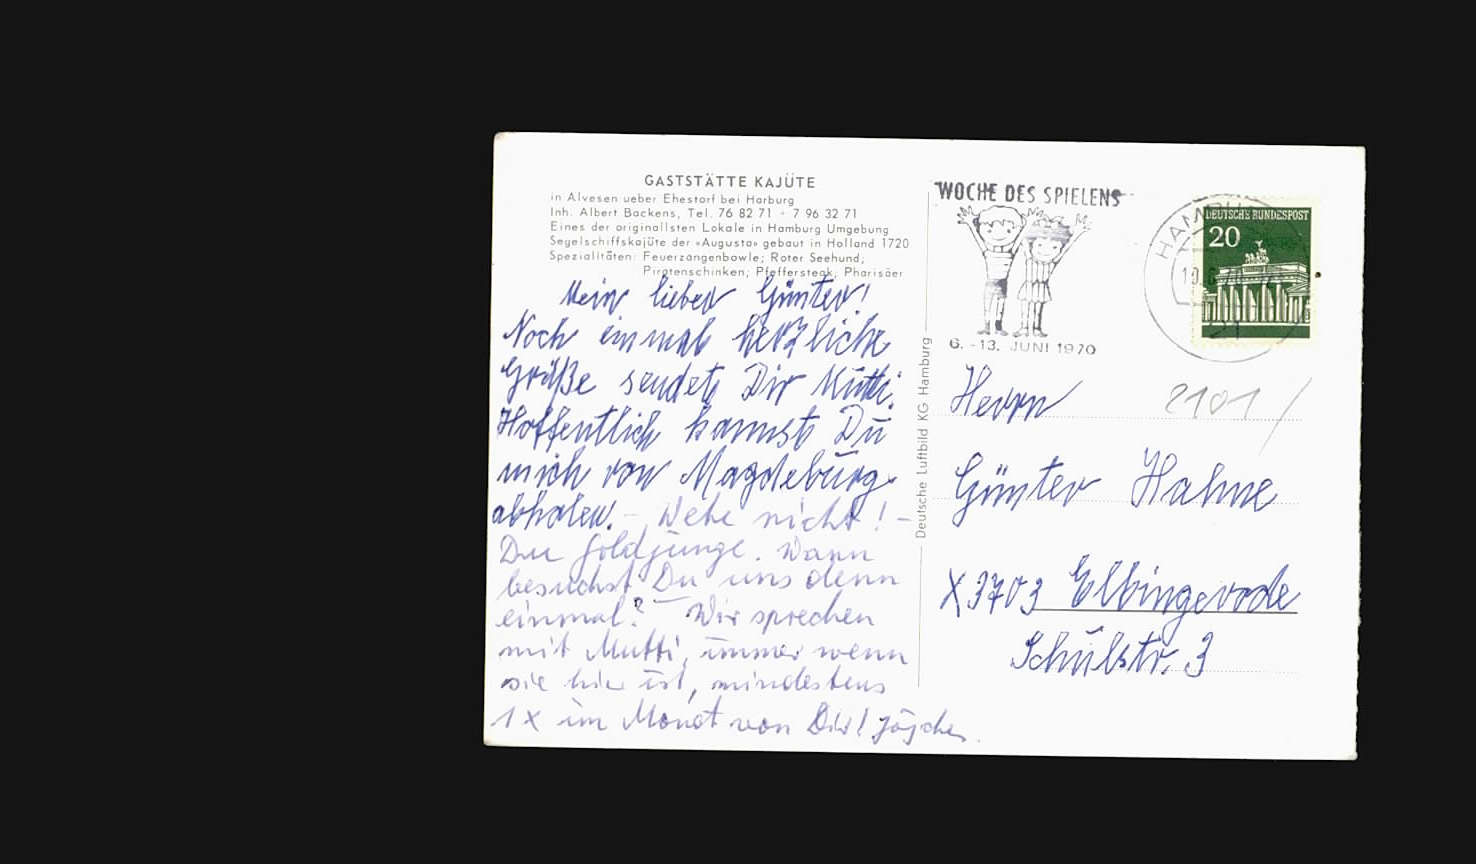 GASTSTÄTTE KAJÜTE
in Alvesen ueber Ehestorf bei Harburg
Inh. Albert Backens, Tel. 76 82 71 - 7 96 32 71
Eines der originallsten Lokale in Hamburg Umgebung
Segelschiffskajüte der «Augusta» gebaut in Holland 1720
Spezialitäten: Feuerzangenbowle; Roter Seehund;
Piratenschinken; Pfeffersteak; Pharisäer
Mein lieber Günter!
Noch einmal herzliche
Grüße sendet Dir Mutti.
Hoffentlich kannst Du
mich von Magdeburg
abholen. - Wehe nicht! -
Du Goldjunge. Wann
besuchst Du uns denn
einmal? Wir sprechen
mit Mutti, immer wenn
sie hier ist, mindestens
1 x im Monat von Dir!
Deutsche Luftbild KG Hamburg
WOCHE DES SPIELENS
6. - 13. JUNI 1970
HAMBURG
21
DEUTSCHE BUNDESPOST
20
2101 /
Herrn
Günter Hahne
X 3703 Elbingerode
Schulstr. 3